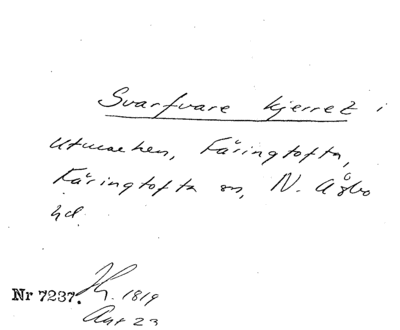 Svarfvare kjerret i
utmarken, Färingtofta,
Färingtofta sn, N. Åsbo
hd.
Nr 7237. H. 1819
Aut 23